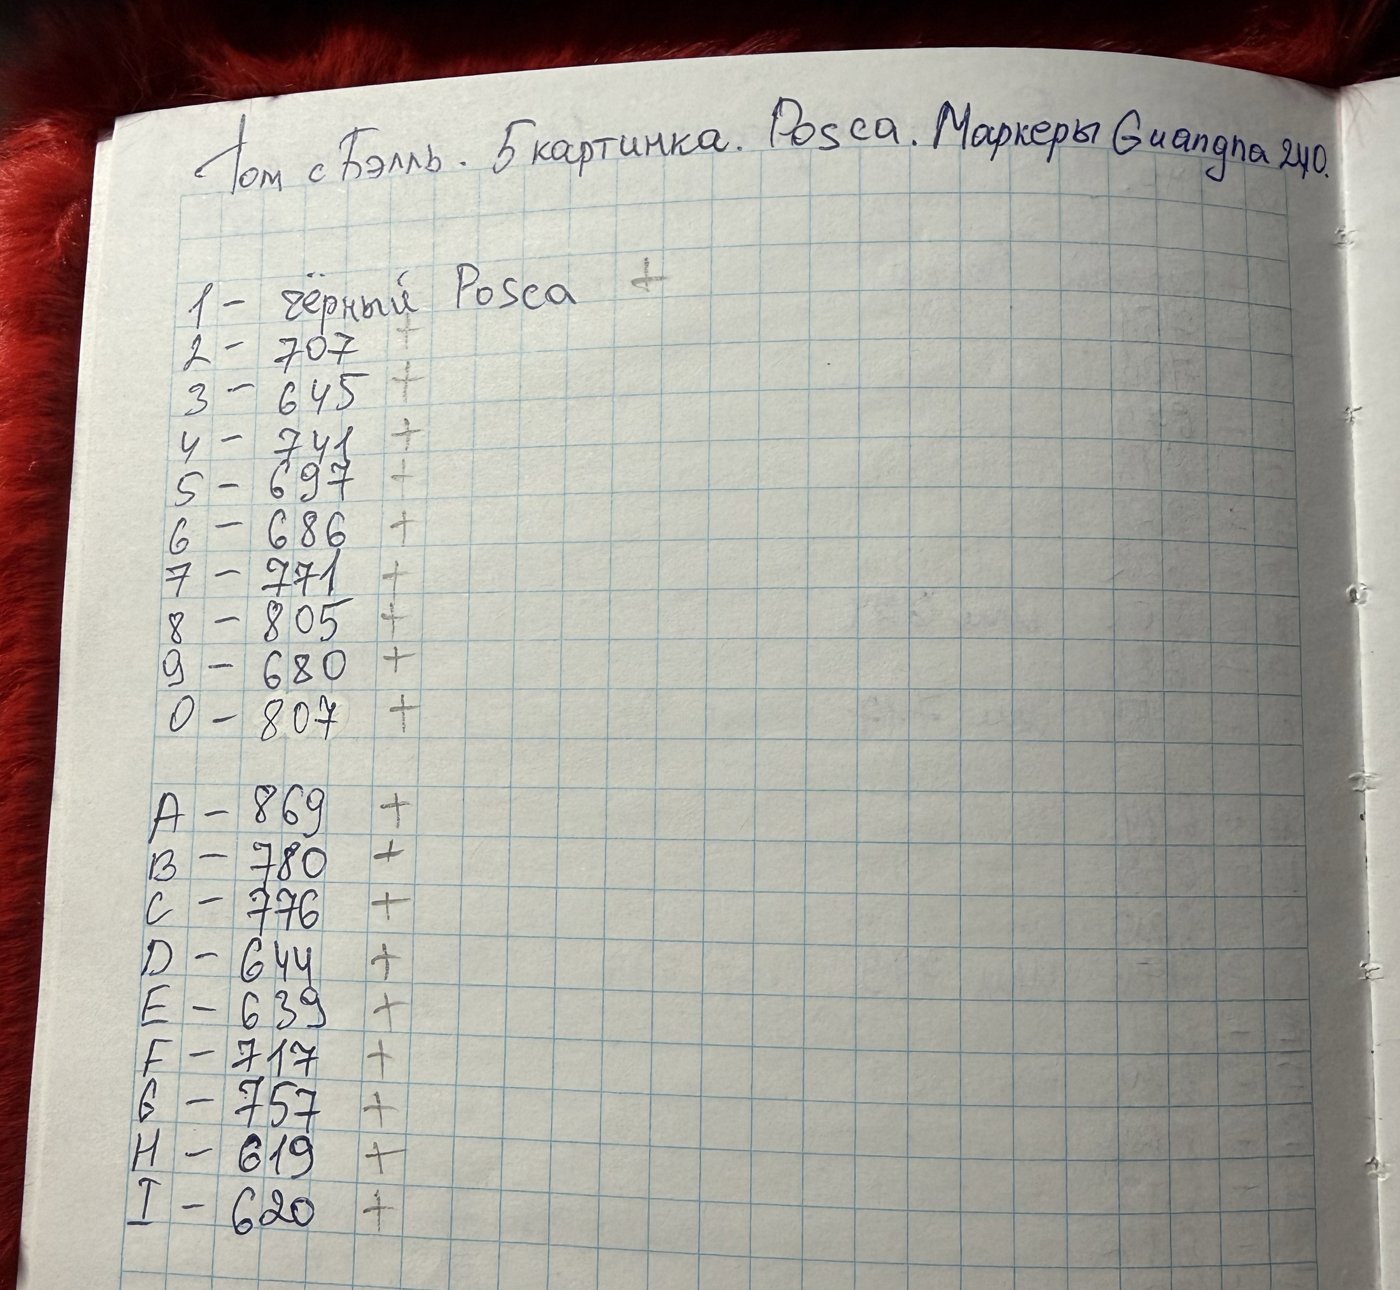 Том с Бэлль. 5 картинка. Posca. Маркеры Guangna 240.
1 - чёрный Posca +
2 - 707 +
3 - 645 +
4 - 741 +
5 - 697 +
6 - 686 +
7 - 771 +
8 - 805 +
9 - 680 +
0 - 807 +
A - 869 +
B - 780 +
C - 776 +
D - 644 +
E - 639 +
F - 717 +
G - 757 +
H - 619 +
I - 620 +